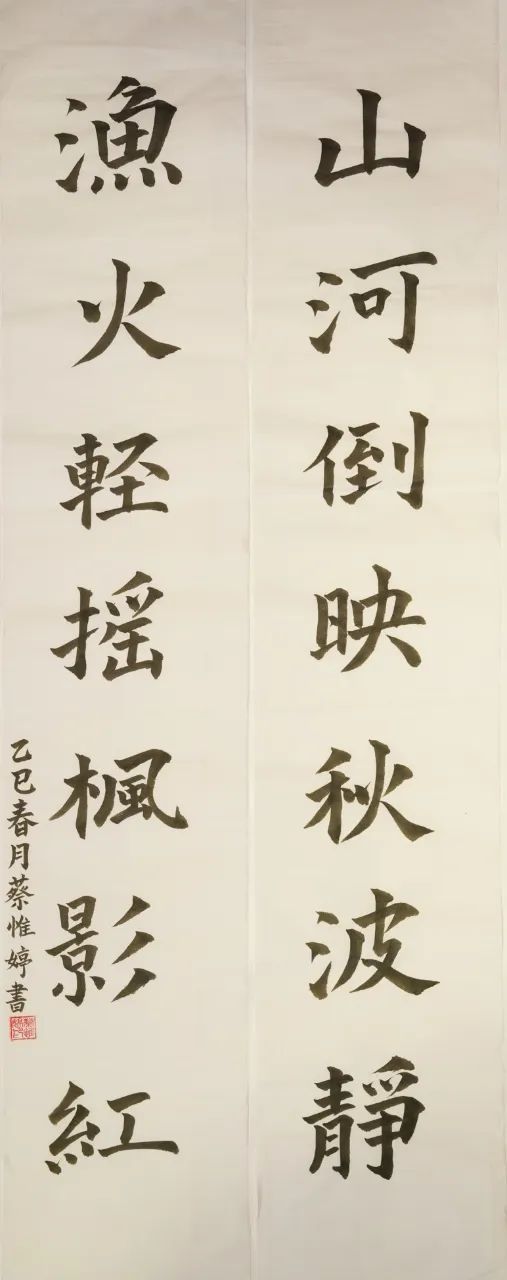 山河倒映秋波靜
漁火軽揺楓影紅
乙巳春月蔡惟婷書